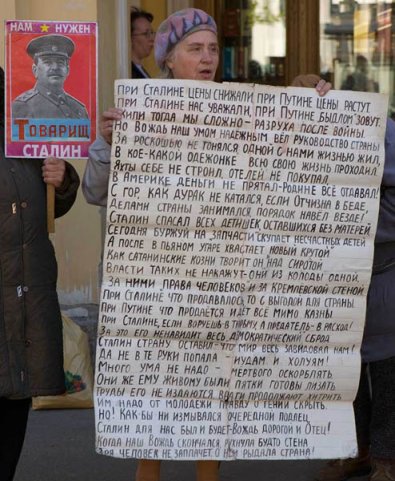 НАМ НУЖЕН
ТОВАРИЩ
СТАЛИН
ПРИ СТАЛИНЕ ЦЕНЫ СНИЖАЛИ, ПРИ ПУТИНЕ ЦЕНЫ РАСТУТ
ПРИ СТАЛИНЕ НАС УВАЖАЛИ, ПРИ ПУТИНЕ БЫДЛОМ ЗОВУТ.
ЖИЛИ ТОГДА МЫ СЛОЖНО - РАЗРУХА ПОСЛЕ ВОЙНЫ.
НО ВОЖДЬ НАШ УМОМ НАДЁЖНЫМ ВЁЛ РУКОВОДСТВО СТРАНЫ
ЗА РОСКОШЬЮ НЕ ГОНЯЛСЯ ОДНОЙ С НАМИ ЖИЗНЬЮ ЖИЛ,
В КОЕ-КАКОЙ ОДЁЖОНКЕ ВСЮ СВОЮ ЖИЗНЬ ПРОХОДИЛ.
ЯХТЫ СЕБЕ НЕ СТРОИЛ, ОТЕЛЕЙ НЕ ПОКУПАЛ
В АМЕРИКЕ ДЕНЬГИ НЕ ПРЯТАЛ-РОДИНЕ ВСЁ ОТДАВАЛ!
С ГОР, КАК ДУРАК НЕ КАТАЛСЯ, ЕСЛИ ОТЧИЗНА В БЕДЕ,
ДЕЛАМИ СТРАНЫ ЗАНИМАЛСЯ, ПОРЯДОК НАВЁЛ ВЕЗДЕ!
СТАЛИН СПАСАЛ ВСЕХ ДЕТИШЕК ОСТАВШИХСЯ БЕЗ МАТЕРЕЙ
СЕГОДНЯ БУРЖУЙ НА ЗАПЧАСТИ СКУПАЕТ НЕСЧАСТНЫХ ДЕТЕЙ
А ПОСЛЕ В ПЬЯНОМ УГАРЕ ХВАСТАЕТ НОВЫЙ КРУТОЙ
КАК САТАНИНСКИЕ КОЗНИ ТВОРИТ ОН НАД СИРОТОЙ
ВЛАСТИ ТАКИХ НЕ НАКАЖУТ-ОНИ ИЗ КОЛОДЫ ОДНОЙ.
ЗА НИМИ ПРАВА ЧЕЛОВЕКОВ И ЗА КРЕМЛЕВСКОЙ СТЕНОЙ.
ПРИ СТАЛИНЕ ЧТО ПРОДАВАЛОСЬ ТО С ВЫГОДОЙ ДЛЯ СТРАНЫ
ПРИ ПУТИНЕ ЧТО ПРОДАЁТСЯ ИДЁТ ВСЁ МИМО КАЗНЫ
ПРИ СТАЛИНЕ, ЕСЛИ ВОРУЕШЬ В ТЮРЬМУ, А ПРЕДАТЕЛЬ - В РАСХОД!
ЗА ЭТО ЕГО НЕНАВИДИТ ВЕСЬ ДЕМОКРАТИЧЕСКИЙ СБРОД
СТАЛИН СТРАНУ ОСТАВИЛ - ЧТО МИР ВЕСЬ ЗАВИДОВАЛ НАМ!
ДА НЕ В ТЕ РУКИ ПОПАЛА - ИУДАМ И ХОЛУЯМ!
МНОГО УМА НЕ НАДО - МЕРТВОГО ОСКОРБЛЯТЬ
ОНИ ЖЕ ЕМУ ЖИВОМУ БЫЛИ ПЯТКИ ГОТОВЫ ЛИЗАТЬ.
ТРУДЫ ЕГО НЕ ИЗДАЮТСЯ, ВРАГИ ПРОДОЛЖАЮТ ХИТРИТЬ
ИМ, НАДО ОТ МОЛОДЁЖИ ПРАВДУ О ГЕНИИ СКРЫТЬ.
НО! КАК БЫ НИ ИЗМЫВАЛСЯ ОЧЕРЕДНОЙ ПОДЛЕЦ
СТАЛИН ДЛЯ НАС БЫЛ И БУДЕТ-ВОЖДЬ ДОРОГОЙ И ОТЕЦ!
КОГДА НАШ ВОЖДЬ СКОНЧАЛСЯ, РУХНУЛА БУДТО СТЕНА
ЗРЯ ЧЕЛОВЕК НЕ ЗАПЛАЧЕТ, О НЁМ РЫДАЛА СТРАНА!